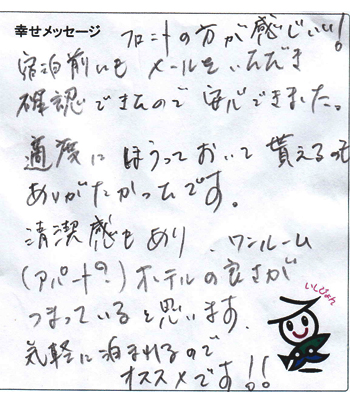 幸せメッセージ
フロントの方が感じいい！
宿泊前にも メールをいただき
確認できたので 安心できました。
適度に ほうっておいて 貰えるのも
ありがたかったです。
清潔感もあり、ワンルーム
(アパート？)ホテルの良さが
つまっていると思います。
気軽に泊まれるので
オススメです!!